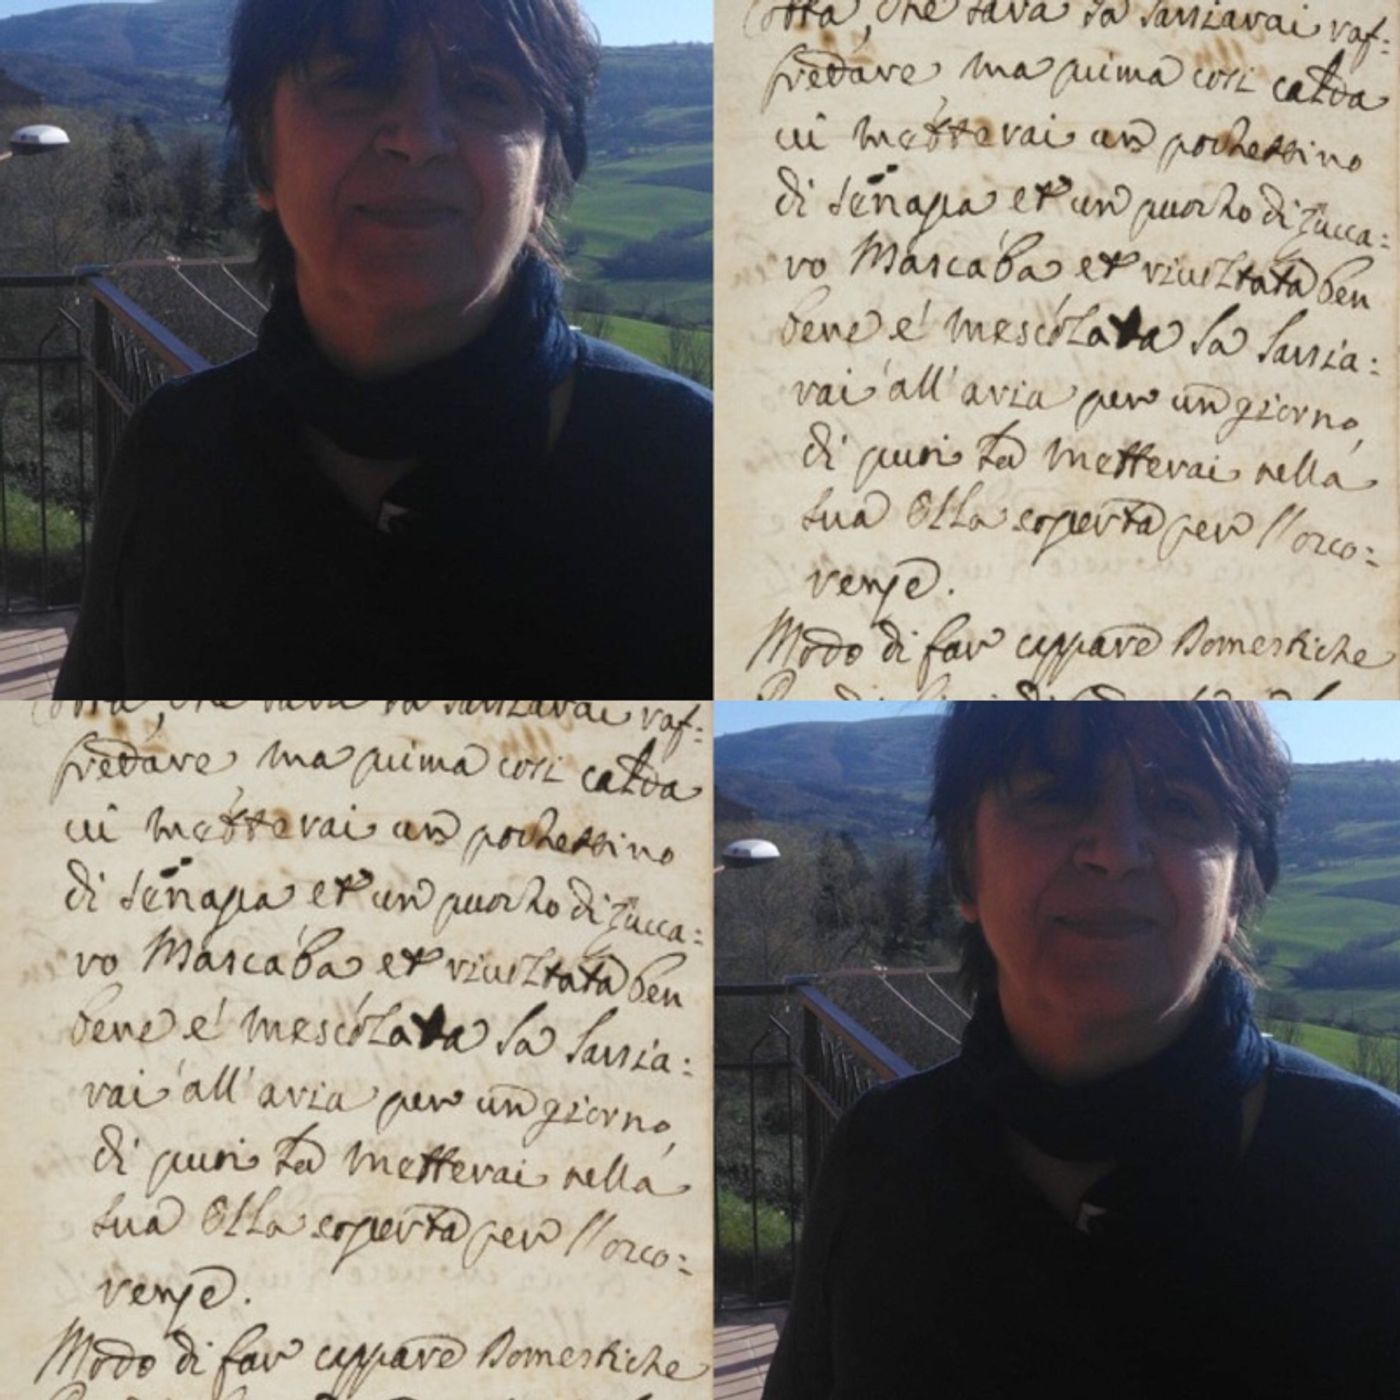 Cotta, che sarà la lassiarai raf=
fredare, ma prima così calda
vi metterai un pochettino
di senapa et un puocho di zucca=
ro Mascaba et rivoltata ben
bene e' mescolata la lassia=
rai all' aria per un giorno,
di puoi la metterai nella
sua Olla coperta per l'
Modo di far cappare Domestiche
fredare, ma prima così calda
vi metterai un pochettino
di senapa et un puocho di zucca=
ro Mascaba et rivoltata ben
bene e' mescolata la lassia=
rai all' aria per un giorno,
di puoi la metterai nella
sua Olla coperta per l'
Modo di far cappare Domestiche